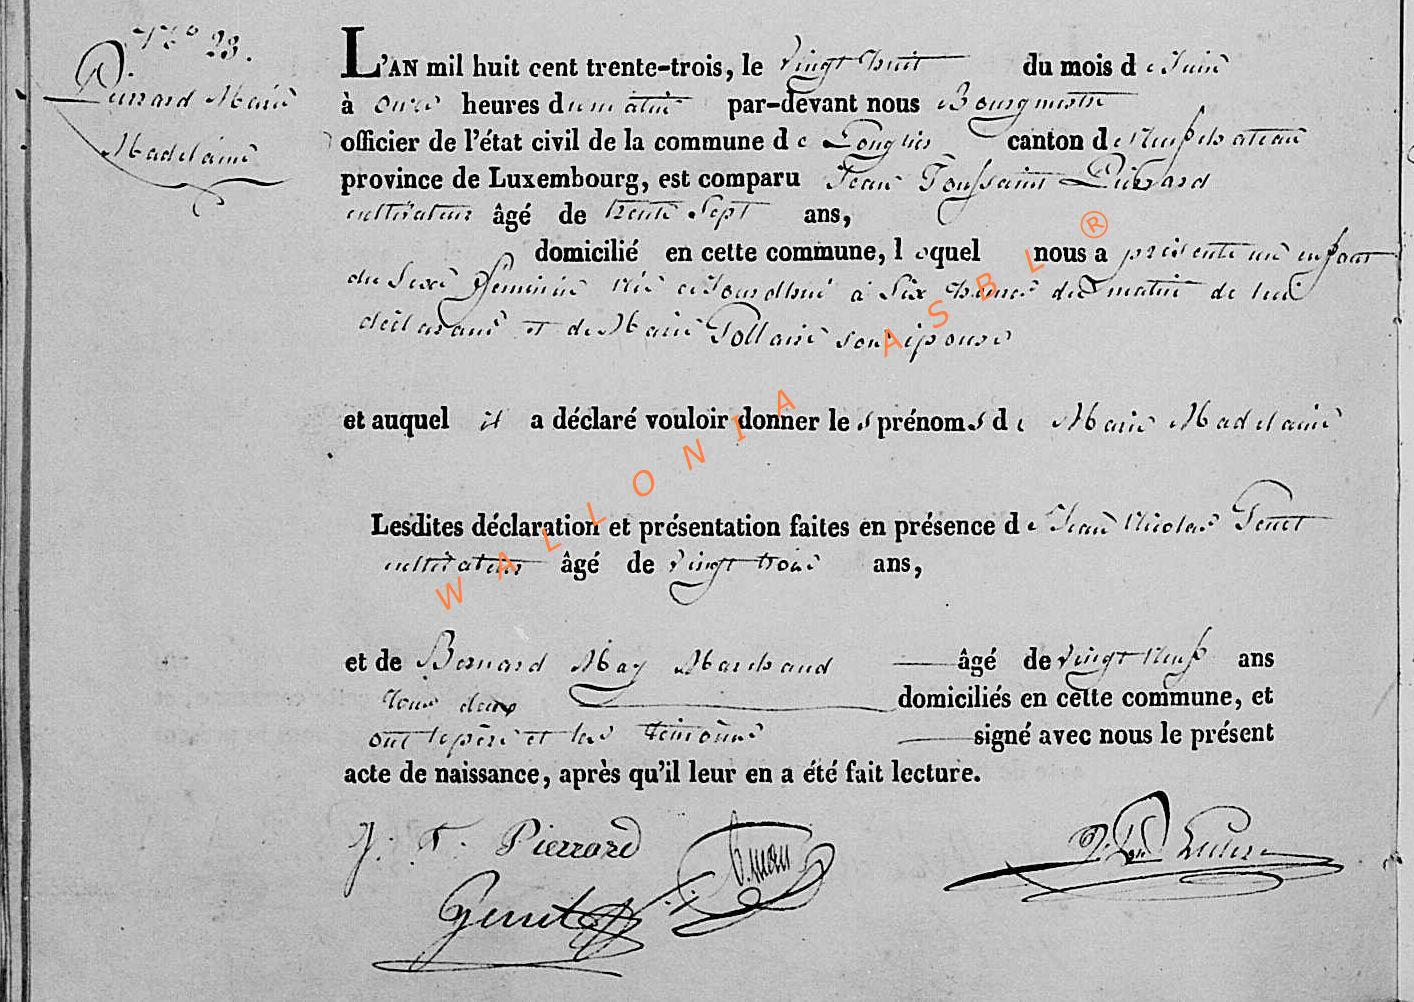 N° 23.
Pierrard Marie
Madelaine
L'AN mil huit cent trente-trois, le vingt huit du mois de Juin
à onze heures du matin par-devant nous Bourgmestre
officier de l'état civil de la commune de Longlier canton de Neufchateau
province de Luxembourg, est comparu Jean Toussaint Pierrard
cultivateur âgé de trente Sept ans,
domicilié en cette commune, lequel nous a présenté un enfant
du Sexe féminin née aujourdhui à Six heures du matin de lui
déclarant et de Marie Gollaire son épouse
et auquel il a déclaré vouloir donner les prénoms de Marie Madelaine
Lesdites déclaration et présentation faites en présence de Jean Nicolas Genet
cultivateur âgé de vingt trois ans,
et de Bernard May Marchand âgé de vingt neuf ans
tous deux domiciliés en cette commune, et
ont le père et les témoins signé avec nous le présent
acte de naissance, après qu'il leur en a été fait lecture.
J. T. Pierrard
Genet
WALLONIA ASBL ®